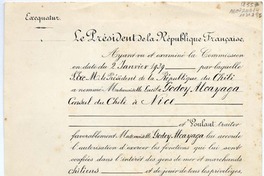 Exequatur.
Le Président de la République Française,
Ayant vu et examiné la Commission
en date du 2 Janvier 1939 par laquelle
S. Exc. M. le Président de la République du Chili
a nommé Mademoiselle Lucila Godoy Alcayaga
Consul du Chili à Nice
et Voulant traiter
favorablement Mademoiselle Godoy Alcayaga lui accorde
l'autorisation d'exercer les fonctions qui lui sont
confiées dans l'intérêt des gens de mer et marchands
chiliens et de jouir de tous les privilèges,